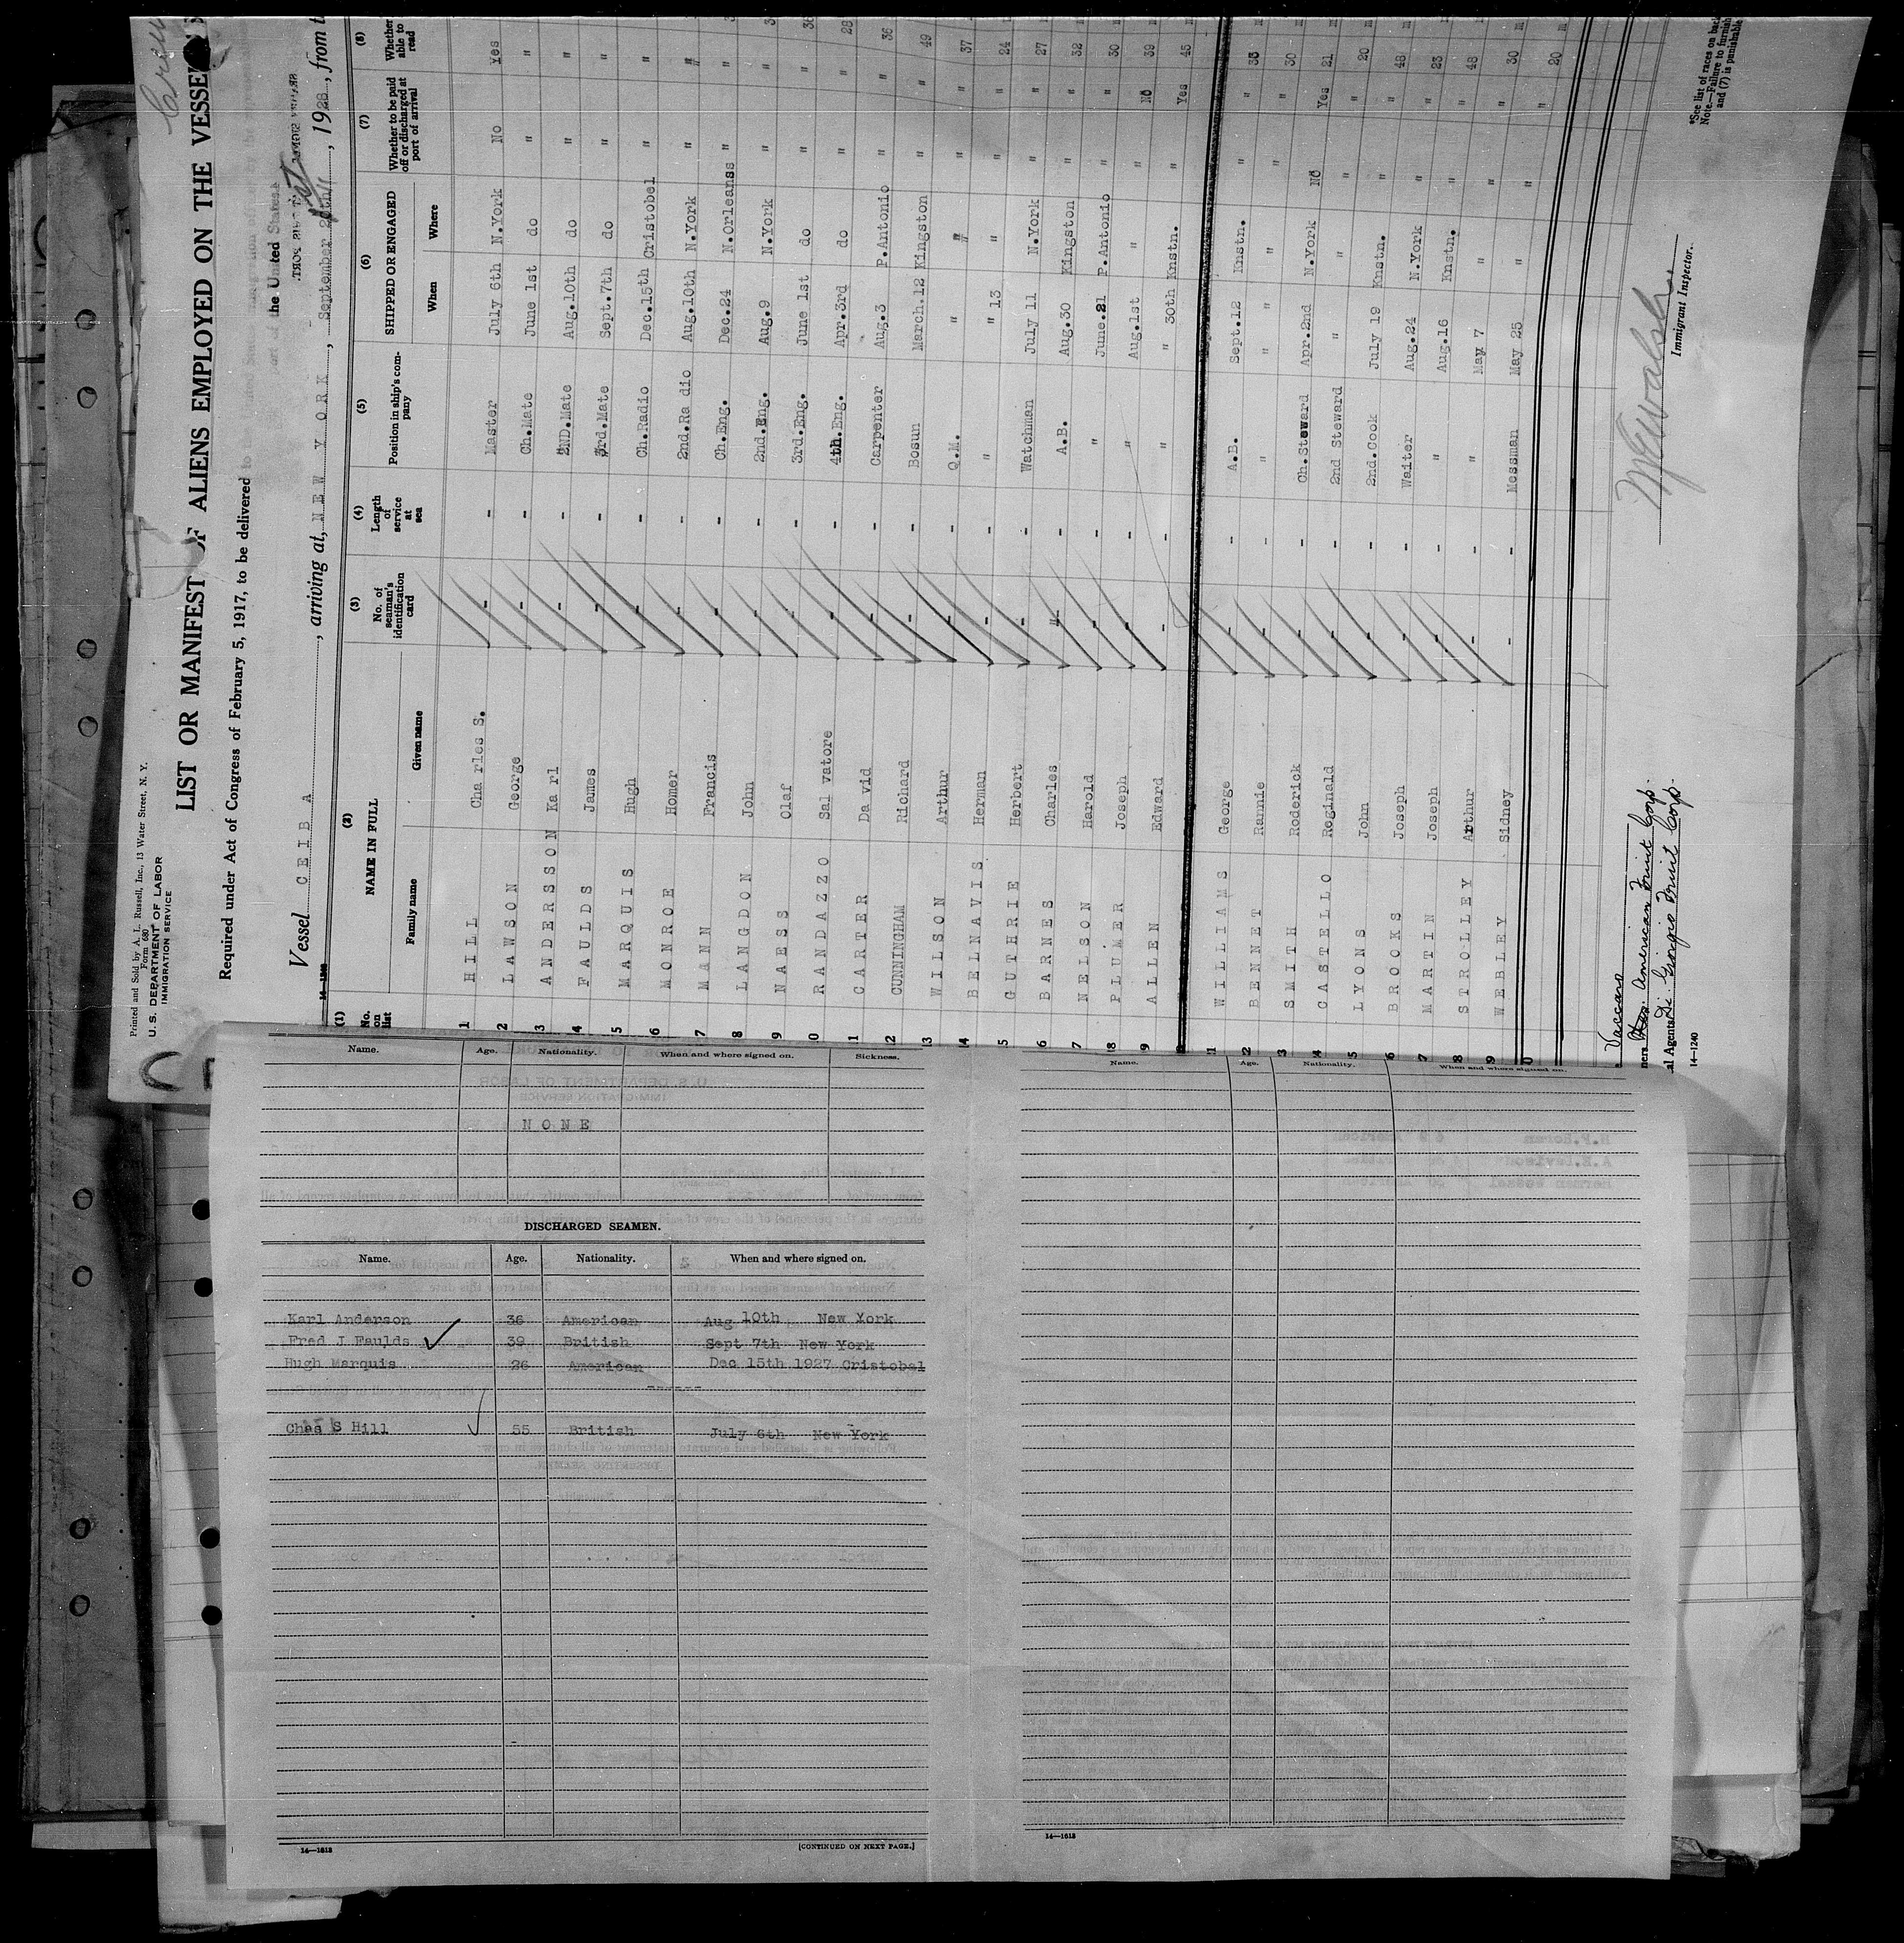 Printed and Sold by A. L. Russell, Inc., 13 Water Street, N. Y.
Form 680
U. S. DEPARTMENT OF LABOR
IMMIGRATION SERVICE
LIST OR MANIFEST OF ALIENS EMPLOYED ON THE VESSEL
Required under Act of Congress of February 5, 1917, to be delivered to the United States
Vessel CEIBA, arriving at, NEW YORK, September 20th, 1928, from
14-1240
(1) (2) (3) (4) (5) (6) (7) (8)
No. on list NAME IN FULL No. of seaman's identification card Length of service at sea Position in ship's company SHIPPED OR ENGAGED Whether to be paid off or discharged at port of arrival Whether able to read
Family name Given name When Where
1 HILL Cha rles S. - - Master July 6th N.York No Yes
2 LAWSON George - - Ch.Mate June 1st do " "
3 ANDERSSON Ka rl - - 2ND.Mate Aug.10th do " "
4 FAULDS James - - 3rd.Mate Sept.7th do " "
5 MARQUIS Hugh - - Ch.Radio Dec.15th Cristobel " "
6 MONROE Homer - - 2nd.Ra dio Aug.10th N.York " "
7 MANN Francis - - Ch.Eng. Dec.24 N.Orleanss " "
8 LANGDON John - - 2nd.Eng. Aug.9 N.York " "
9 NAESS Olaf - - 3rd.Eng. June 1st do " " 36
0 RANDAZZO Sal vatore - - 4th.Eng. Apr.3rd do " " 28
1 CARTER Da vid - - Carpenter Aug.3 P.Antonio " " 36
2 CUNNINGHAM Richard - - Bosun March.12 Kingston " " 49
3 WILSON Arthur - - Q.M. " " " " 37
4 BELNAVIS Herman - - " " 13 " " " 24
5 GUTHRIE Herbert - - Watchman July 11 N.York " " 27
6 BARNES Charles - - A.B. Aug.30 Kingston " " 32
7 NELSON Harold - - " June.21 P.Antonio " " 30
8 PLUMER Joseph - - " Aug.1st " " No 39
9 ALLEN Edward - - " " 30th Knstn. " Yes 45
1 WILLIAMS George - - A.B. Sept.12 Knstn. " " 33
2 BENNET Rannie - - " " " " " 30
3 SMITH Roderick - - Ch.Steward Apr.2nd N.York No Yes 21
4 CASTELLO Reginald - - 2nd Steward " " " " 20
5 LYONS John - - 2nd.Cook July 19 Knstn. " " 48
6 BROOKS Joseph - - Waiter Aug.24 N.York " " 23
7 MARTIN Joseph - - " Aug.16 Knstn. " " 48
8 STROLLEY Arthur - - " May 7 " " " 30
9 WEBLEY Sidney - - Messman May 25 " " " 20
Vaccaro
American Fruit Corp.
al Agents Di Giorgio Fruit Corp.
14-1240
Immigrant Inspector.
*See list of races on back
Note.—Failure to furnish
and (7) is punishable
Name. Age. Nationality. When and where signed on. Sickness.
NONE
DISCHARGED SEAMEN.
Name. Age. Nationality. When and where signed on.
Karl Anderson 36 American Aug 10th New York
Fred J Faulds 39 British Sept 7th New York
Hugh Marquis 26 American Dec 15th 1927 Cristobal
-------
Chas S Hill 55 British July 6th New York
14—1613
[CONTINUED ON NEXT PAGE.]
Name. Age. Nationality. When and where signed on.
14—1613